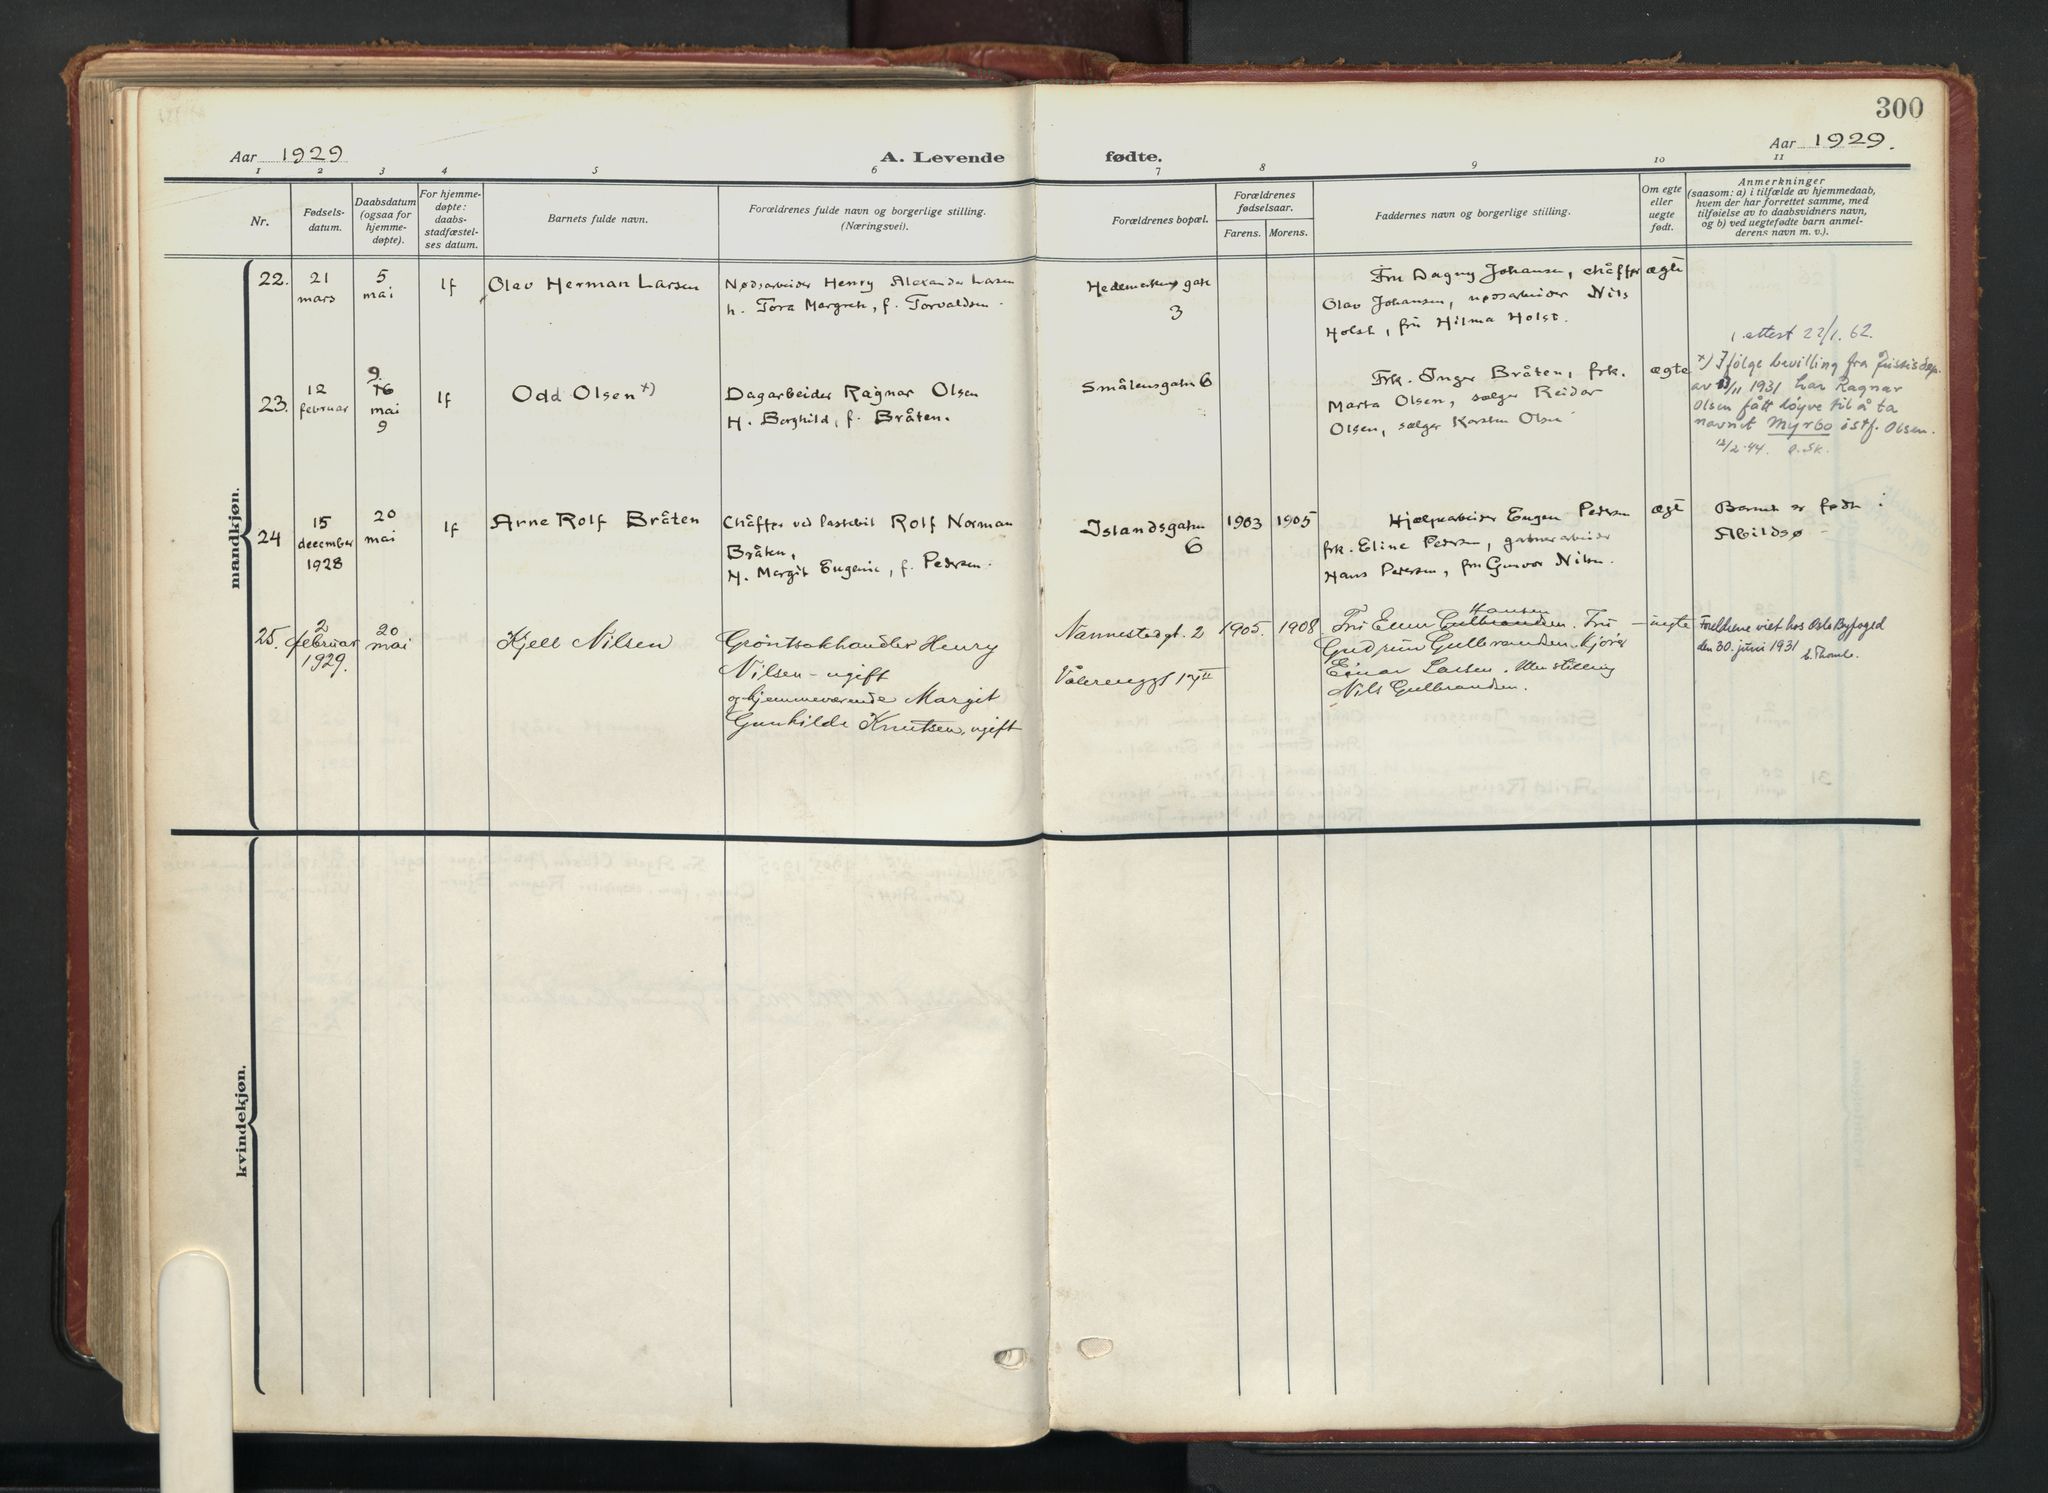 300
Aar 1929
A. Levende
fødte.
Aar 1929.
1 2 3 4 5 6 7 8 9 10 11
Nr.
Fødsels-
datum.
Daabsdatum
(ogsaa for
hjemme-
døpte).
For hjemme-
døpte:
daabs-
stadfæstel-
ses datum.
Barnets fulde navn.
Forældrenes fulde navn og borgerlige stilling.
(Næringsvei).
Forældrenes bopæl.
Forældrenes
fødselsaar.
Farens. Morens.
Faddernes navn og borgerlige stilling.
Om egte
eller
uegte
født.
Anmerkninger
(saasom: a) i tilfælde av hjemmedaab,
hvem der har forrettet samme, med
tilføielse av to daabsvidners navn,
og b) ved uegtefødte barn anmel-
derens navn m. v.).
mandkjøn.
22.
21
mars
5
mai
If
Olav Herman Larsen
Nødsarbeider Henry Alexander Larsen
h. Tora Margreth, f. Torvaldsen.
Hedemarksgatn
3
Fru Dagny Johansen, chåffør
Olav Johansen, nødsarbeider Nils
Holst, fru Hilma Holst.
ægte
23.
12
februar
9.
16
mai
9
If
Odd Olsen x)
Dagarbeider Ragnar Olsen
H. Borghild, f. Bråten.
Smålensgatn 6
Frk. Inger Bråten, frk.
Marta Olsen, sælger Reidar
Olsen, sælger Karsten Olsen
ægte
1 attest 22/1. 62.
x) Ifølge bevilling fra Justisdep.
av 13/11 1931 har Ragnar
Olsen fått løyve til å ta
navnet Myrbo istf. Olsen.
12/2-44. O.Sk.
24
15
december
1928
20
mai
If
Arne Rolf Bråten
Chåffør ved Lastebil Rolf Norman
Bråten,
H. Margit Eugenie, f. Pedersen.
Islandsgatn
6
1903 1905
Hjælpearbeider Eugen Pedersen
frk. Eline Pedersen, gatnerarbeider
Hans Pedersen, fru Gunvor Nilsen.
ægt
Barnet er født i
Abildsø
25.
2
februar
1929.
20
mai
Kjell Nilsen
Grøntsakhandler Henry
Nilsen - ugift
og hjemmeværende Margit
Gunhilde Knutsen, ugift
Nannestadgt. 2
Vålerenggt 17 II
1905. 1908
Hansen
Fru Ellen Gulbrandsen. Fru
Gudrun Gulbrandsen. Kjører
Einar Larsen. Uten stilling
Nils Gulbrandsen.
uegte
Foreldrene viet hos Oslo Byfoged
den 30. juni 1931
kvindekjøn.